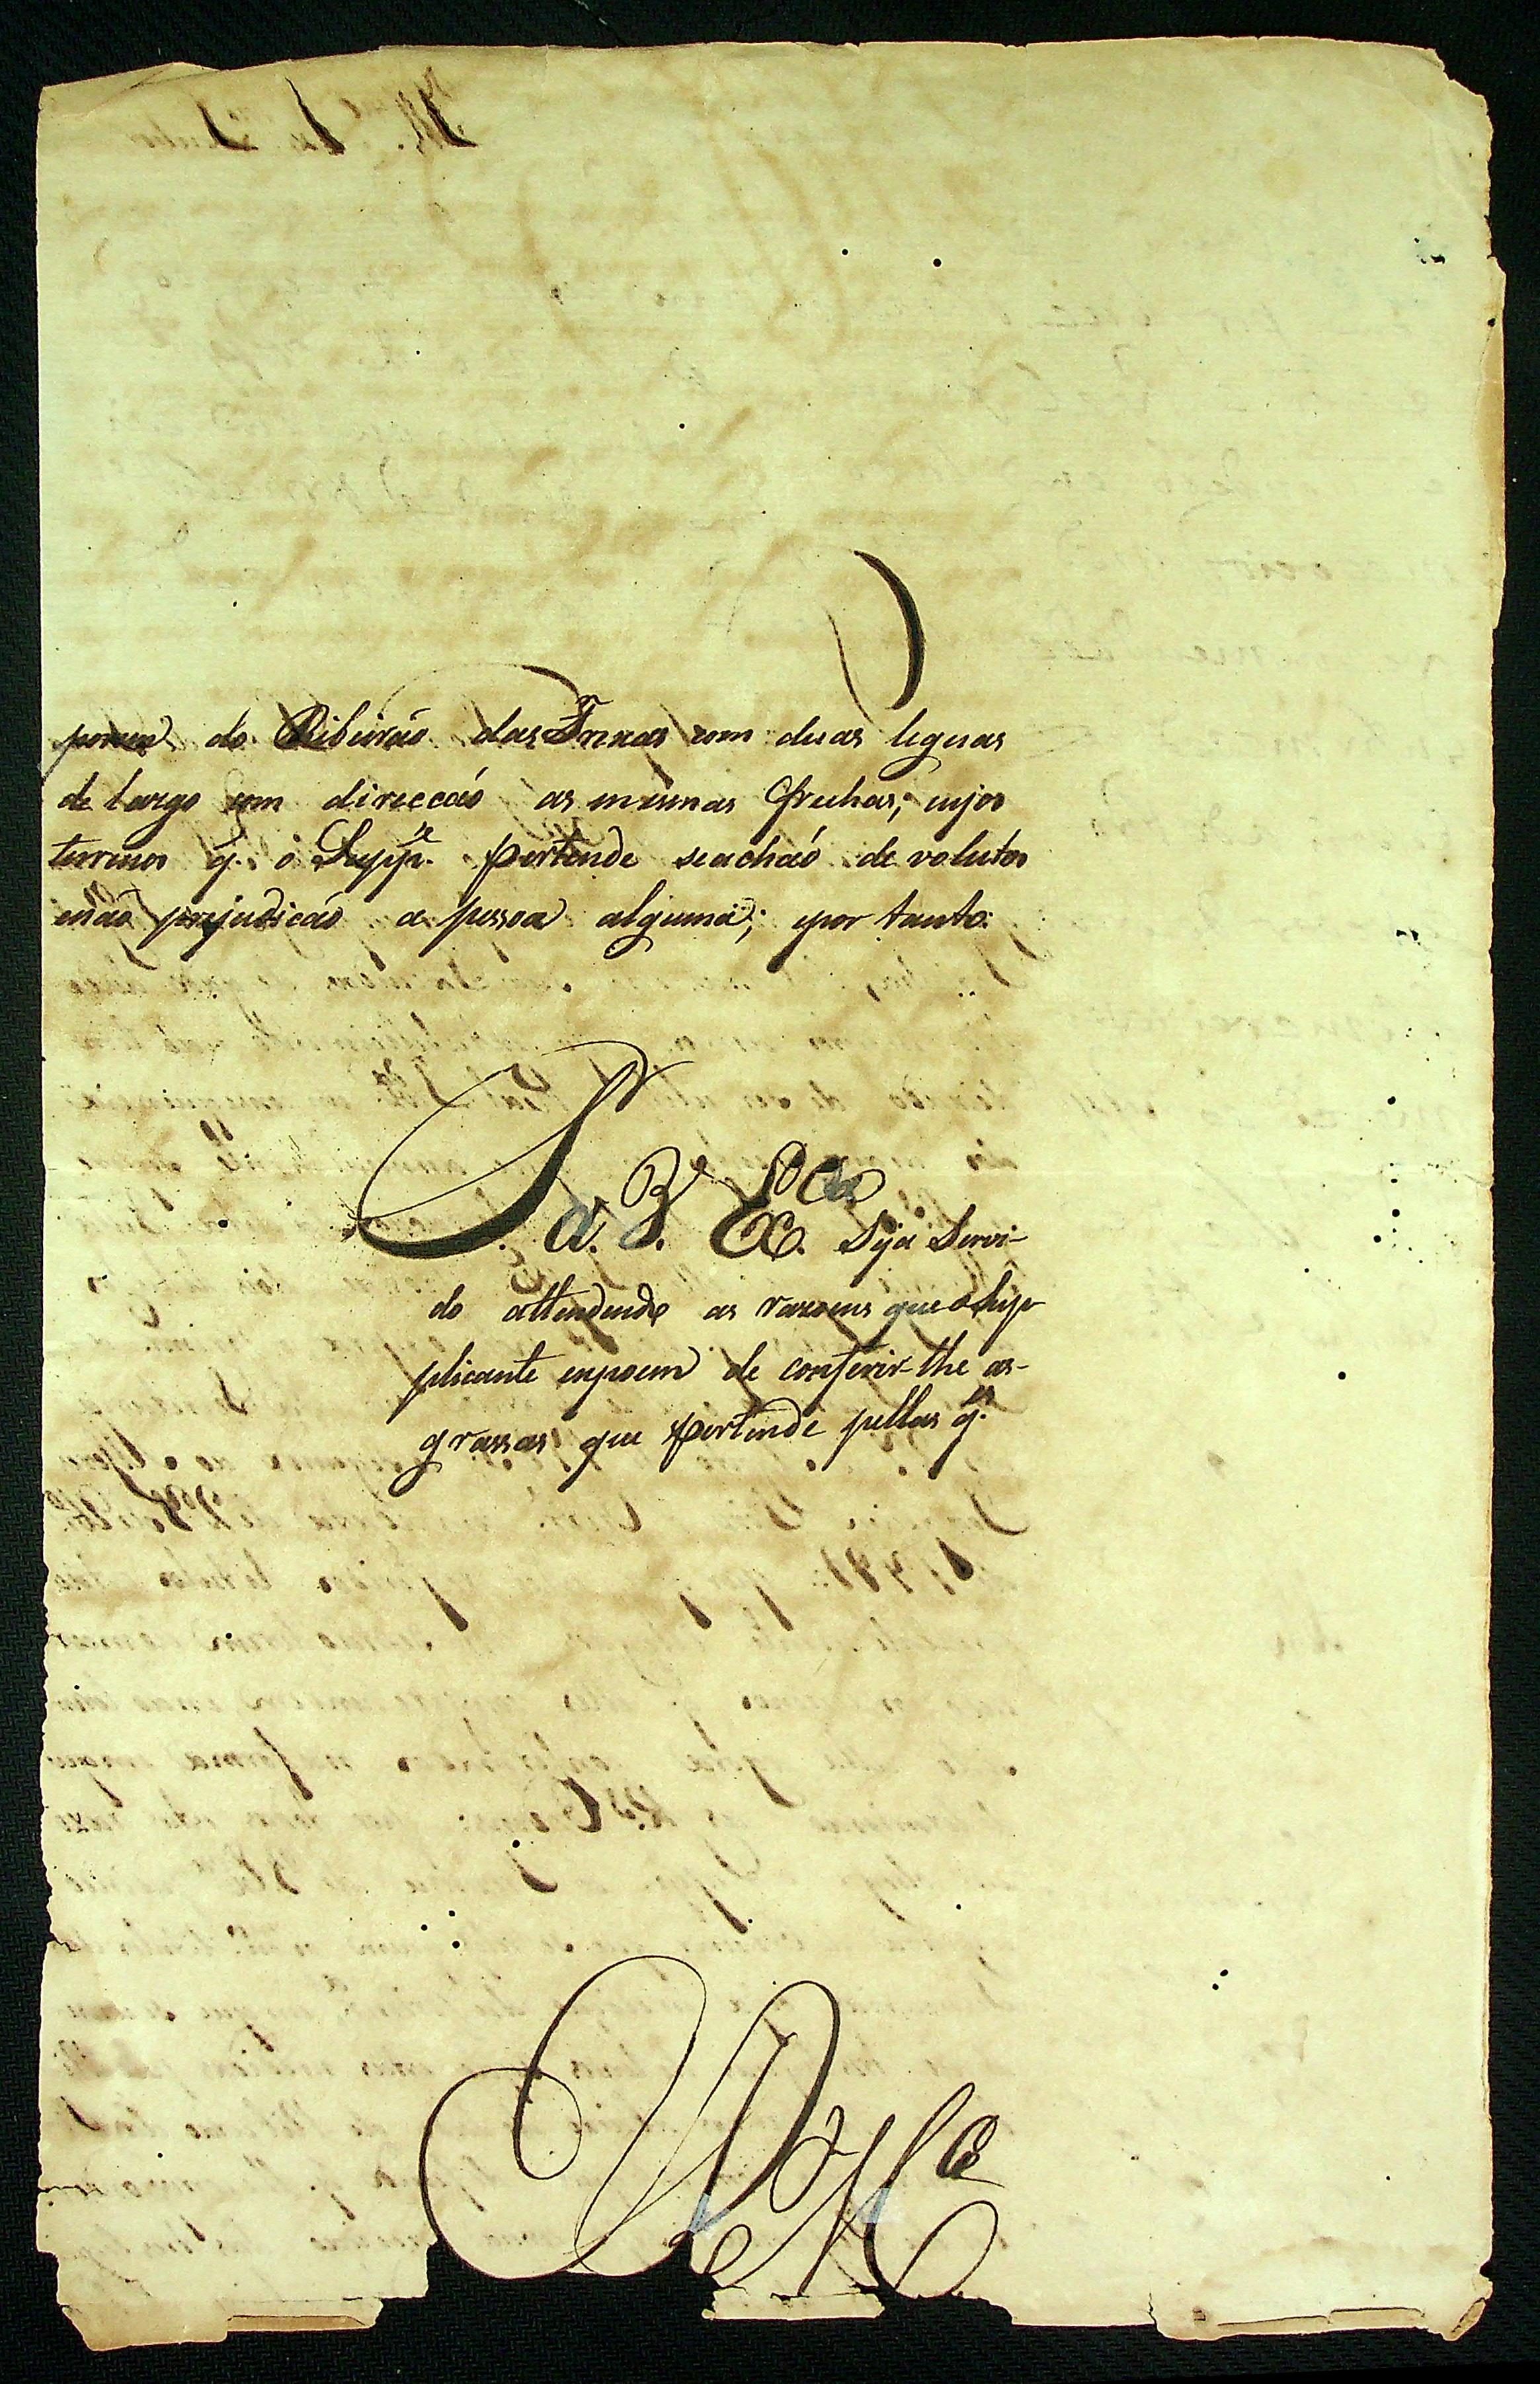 porem do Ribeirão das Furnas com duas legoas
de largo com direccáo as mesmas frechas; cujos
terrenos q. o Supp.e pertende se acháo de volutos
enáo prejudicáo a pessoa alguma; epor tanto:
P. a V. Ex.cia Seja Servi-
do attendendo as razoens que o Sup
plicante expoem de conferir-lhe as-
grassas que pertende pellas q.es
E R M.ce